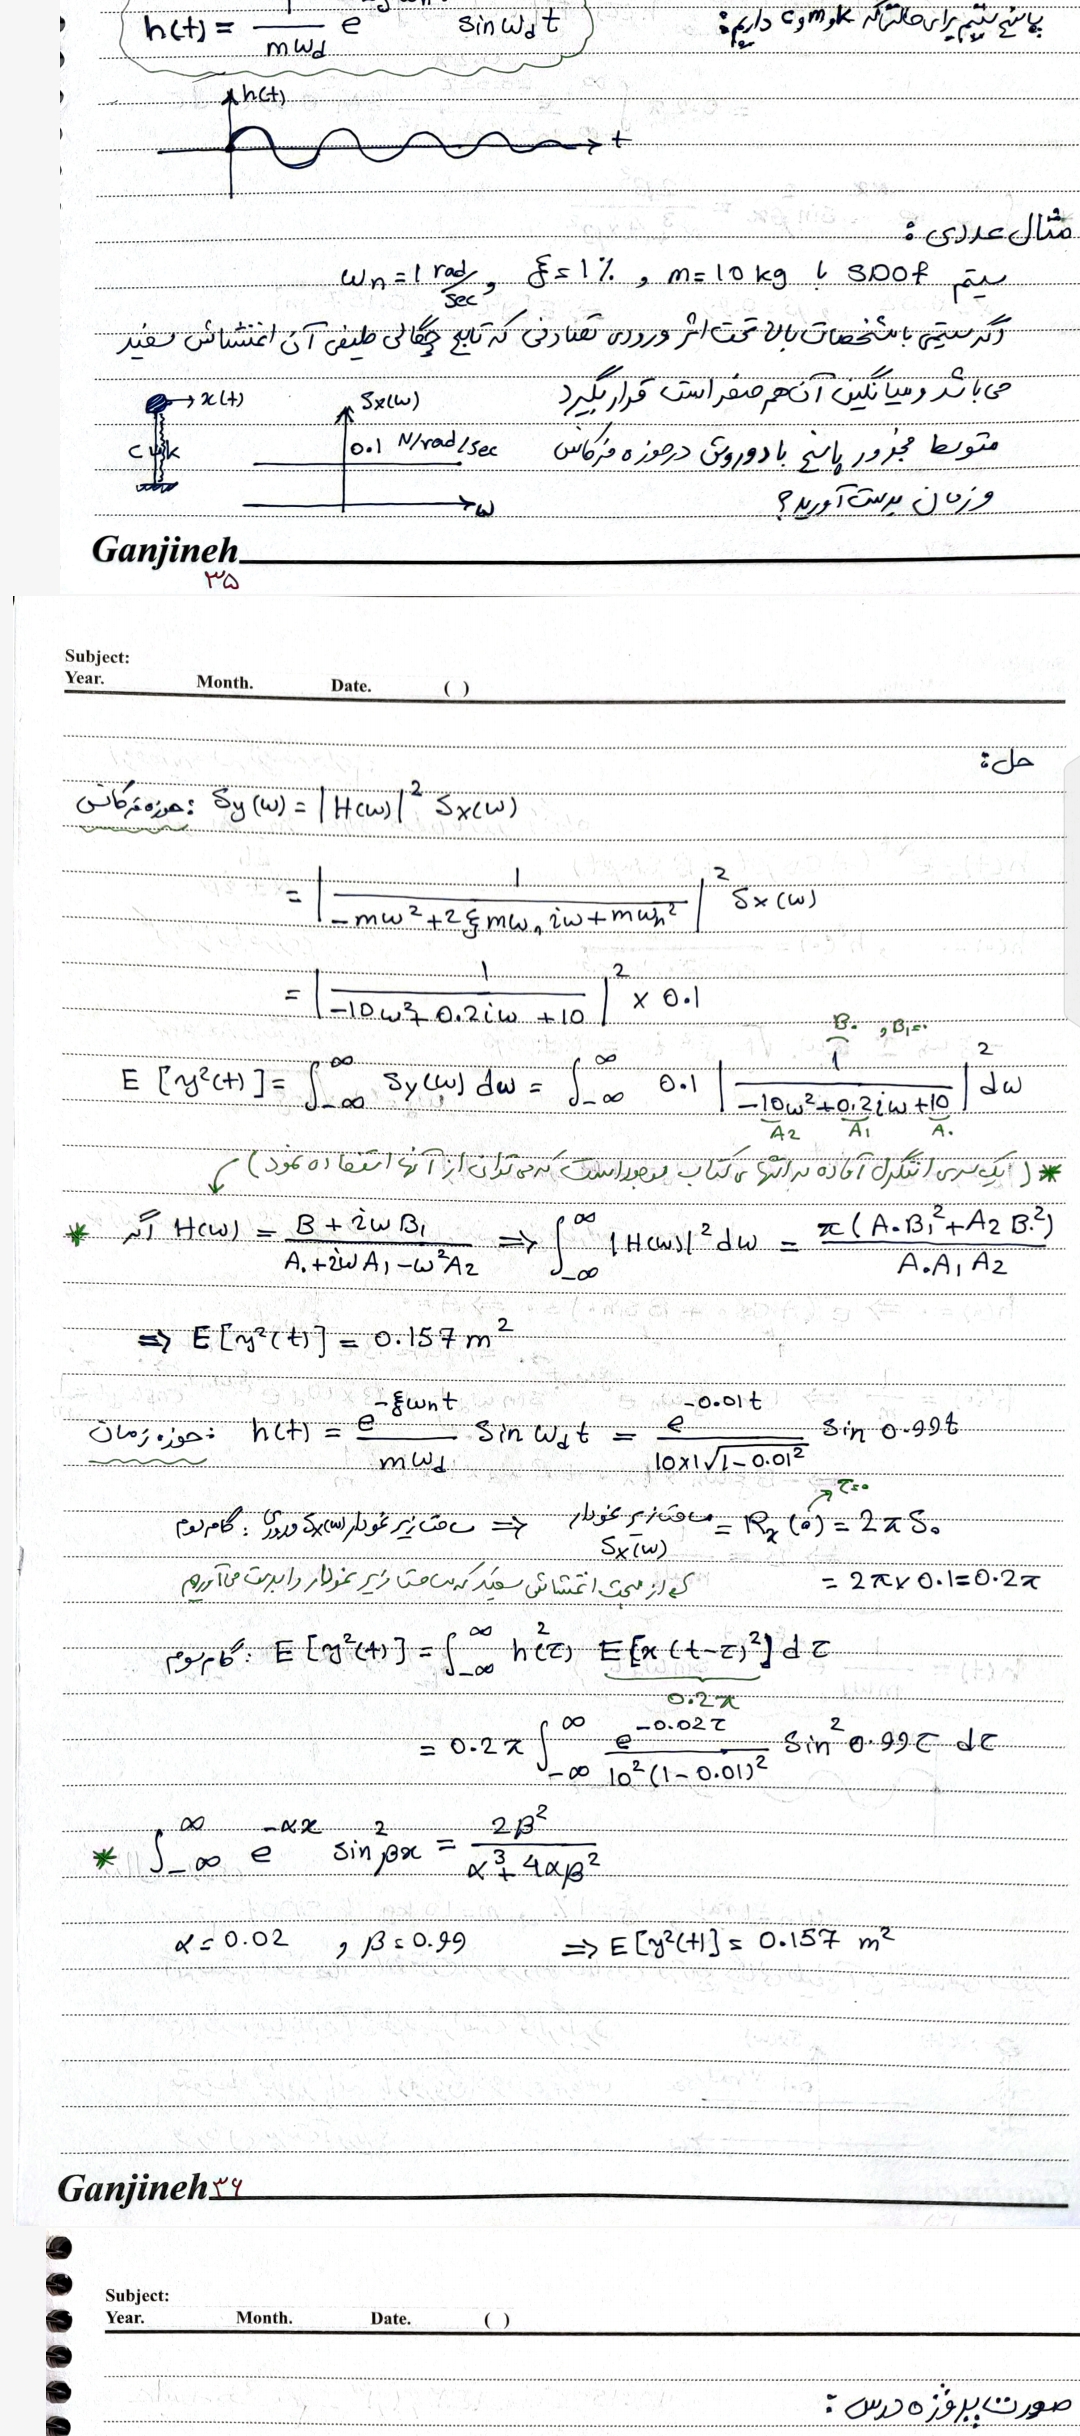 پاسخ سیستم برای حالتی که k و m و c داریم:
h(t) = 1/(mω_d) e sin ω_d t
h(t)
t
مثال عددی:
سیتم SDOF با m = 10 kg , ξ = 1% , ω_n = 1 rad/sec
اگر سیتمی با مشخصات بالا تحت اثر ورودی تصادفی که تابع چگالی طیفی آن اغتشاش سفید
می باشد و میانگین آن هم صفر است قرار بگیرد
متوسط مجذور پاسخ با دو روش در حوزه فرکانس
و زمان بدست آورید؟
x(t)
k
Sx(ω)
0.1 N/rad/sec
ω
Ganjineh
۳۵
Subject:
Year. Month. Date. ( )
حل:
حوزه فرکانس: Sy(ω) = |H(ω)|² Sx(ω)
= |1/(-mω² + 2ξmω_n iω + mω_n²)|² Sx(ω)
= |1/(-10ω² + 0.2iω + 10)|² × 0.1
B. , B₁=.
E[y²(t)] = ∫_{-∞}^{∞} Sy(ω) dω = ∫_{-∞}^{∞} 0.1 |1/(-10ω² + 0.2iω + 10)|² dω
A2 A1 A.
* (یک سری انتگرال آماده در انتهای کتاب موجود است که می توان از آنها استفاده نمود)
* اگر H(ω) = (B + iωB₁)/(A. + iωA₁ - ω²A2) ⇒ ∫_{-∞}^{∞} |H(ω)|² dω = π(A.B₁² + A2B.²)/(A.A₁A2)
⇒ E[y²(t)] = 0.157 m²
حوزه زمان: h(t) = e^{-ξω_n t}/(mω_d) sin ω_d t = e^{-0.01t}/(10×1√(1-0.01²)) sin 0.99t
τ=0
گام دوم: مساحت زیر نمودار Sx(ω) ورودی ⇒ مساحت زیر نمودار Sx(ω) = Rx(0) = 2πS.
= 2π × 0.1 = 0.2π
که از مبحث اغتشاش سفید که مساحت زیر نمودار را بدست می آوردیم
گام سوم: E[y²(t)] = ∫_{-∞}^{∞} h²(τ) E[x(t-τ)²] dτ
0.2π
= 0.2π ∫_{-∞}^{∞} e^{-0.02τ}/(10²(1-0.01)²) sin² 0.99τ dτ
* ∫_{-∞}^{∞} e^{-αx} sin² βx = 2β²/(α³ + 4αβ²)
α = 0.02 , β = 0.99 ⇒ E[y²(t)] = 0.157 m²
Ganjineh ۳۶
Subject:
Year. Month. Date. ( )
صورت پروژه درس: